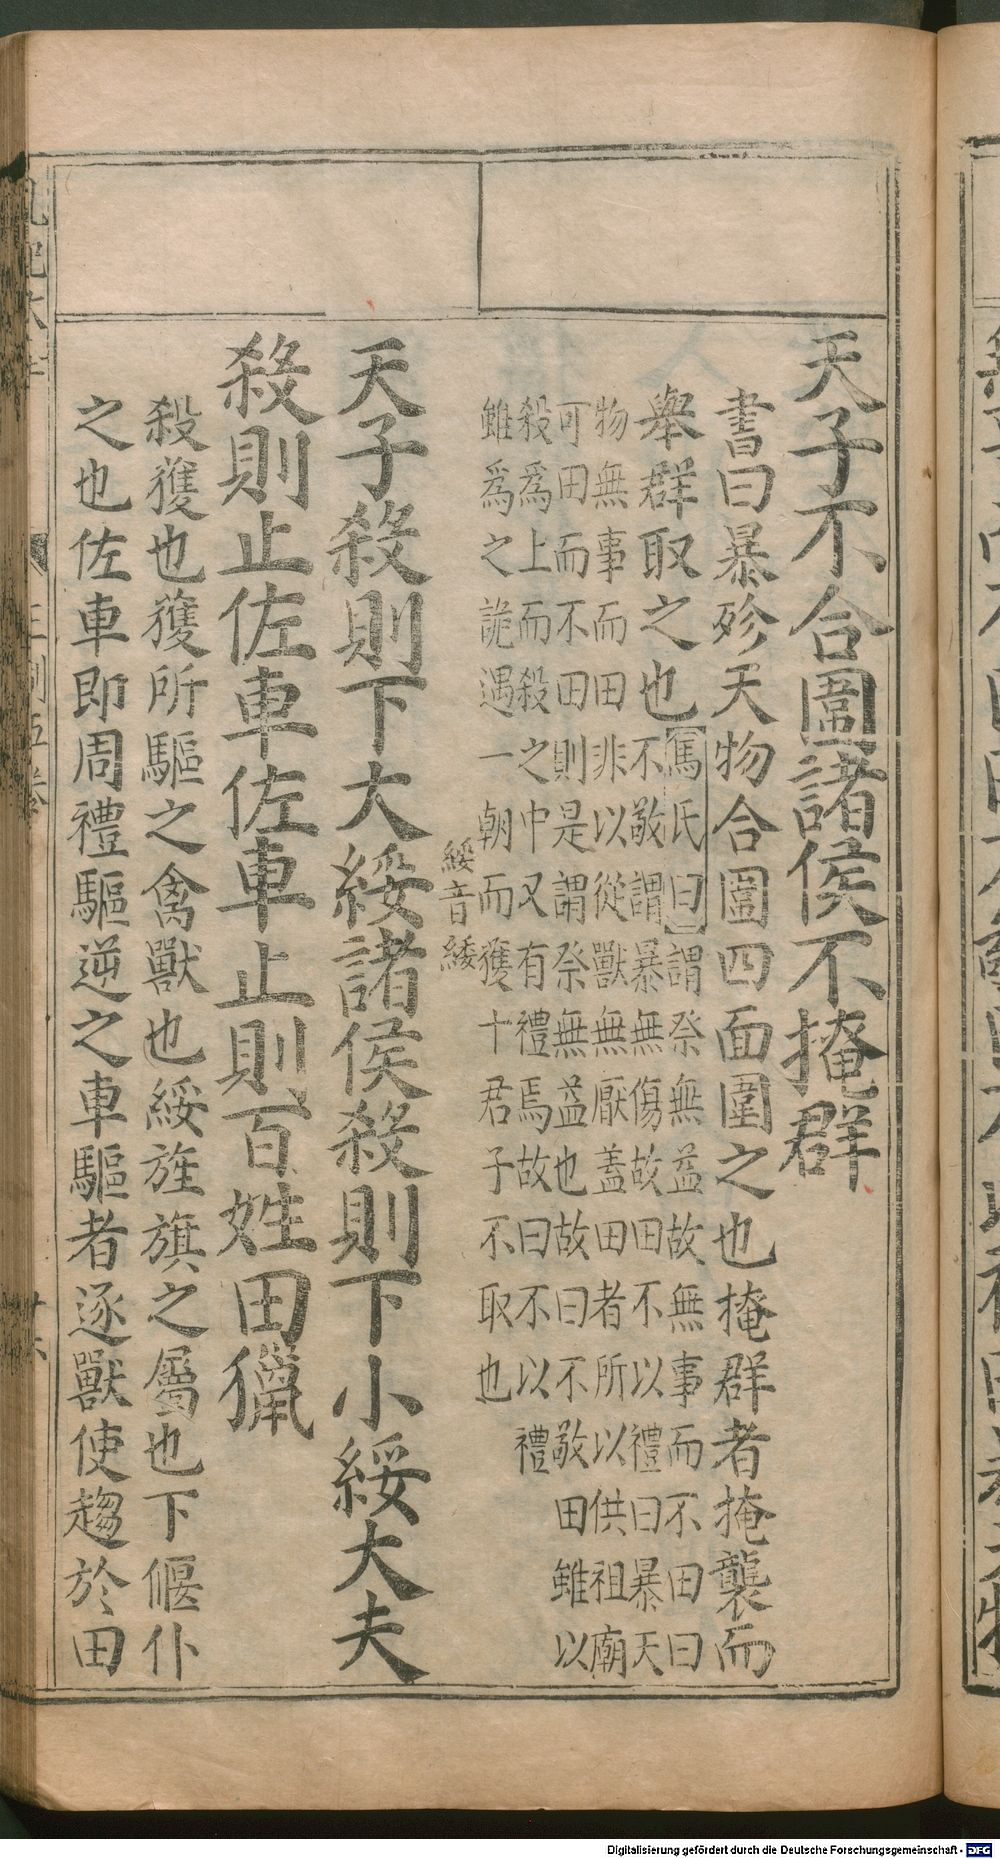 天子不合圍諸侯不掩群
書曰暴殄天物合圍四面圍之也掩群者掩襲而
舉群取之也
馮氏曰謂祭無益故無事而不田曰
不敬謂暴無傷故田不以禮曰暴天
物無事而田非以從獸無厭蓋田者所以供祖廟
可田而不田則是謂祭無益也故曰不敬田雖以
殺爲上而殺之中又有禮焉故曰不以禮
雖爲之詭遇一朝而獲十君子不取也
綏音緌
天子殺則下大綏諸侯殺則下小綏大夫
殺則止佐車佐車止則百姓田獵
殺獲也獲所驅之禽獸也綏旌旗之屬也下偃仆
之也佐車即周禮驅逆之車驅者逐獸使趨於田
Digitalisierung gefördert durch die Deutsche Forschungsgemeinschaft - DFG